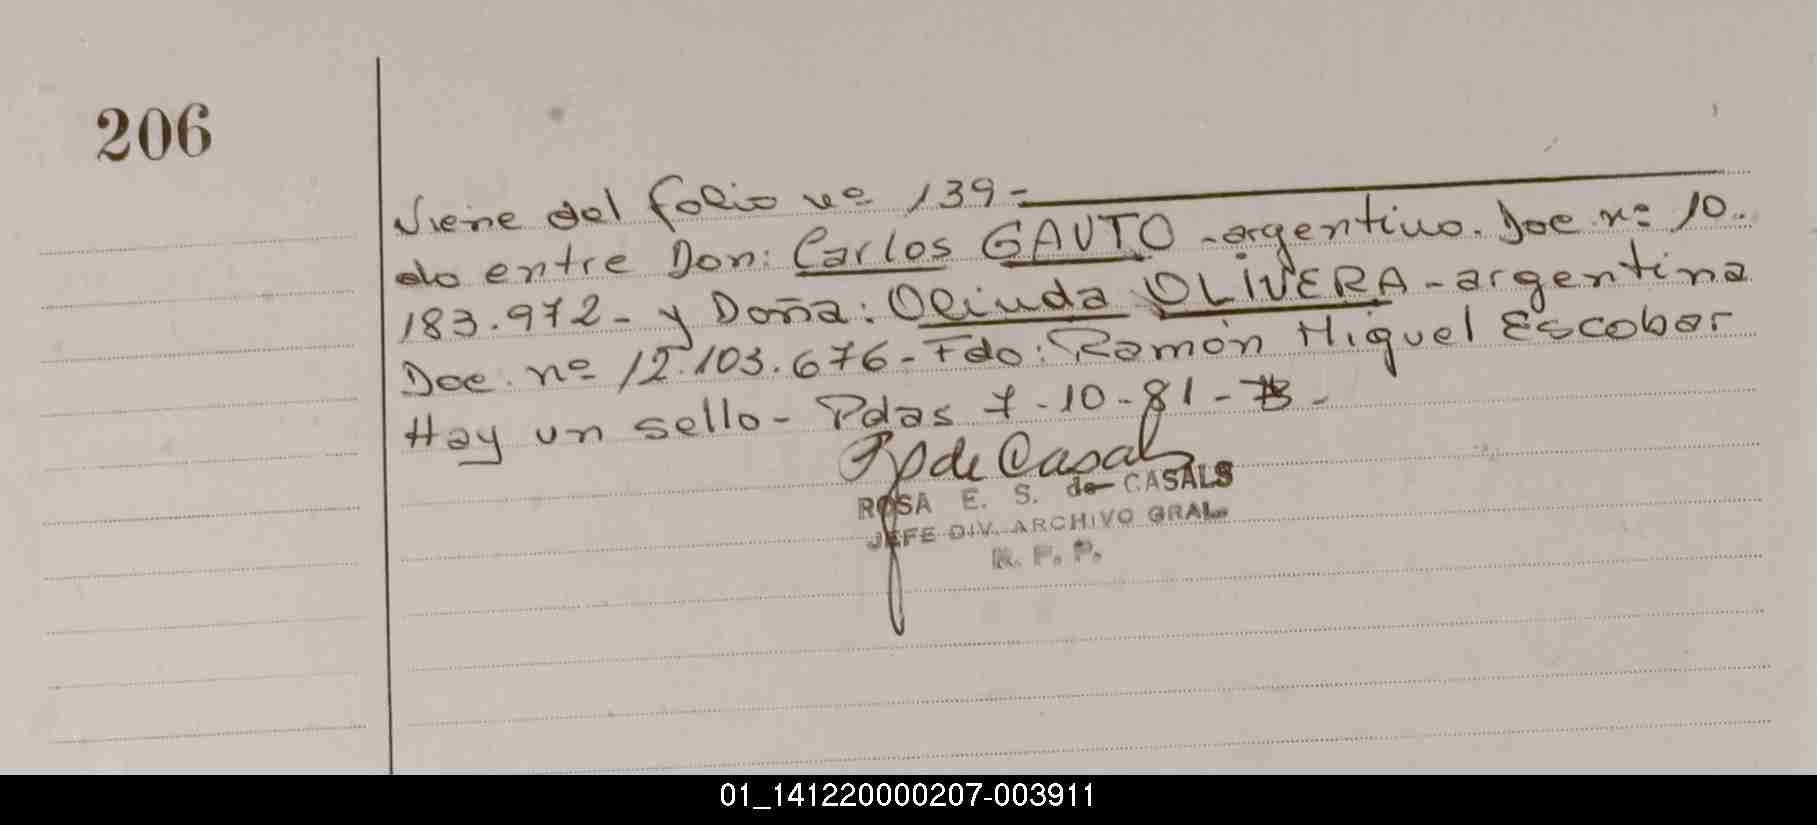 206
Viene del folio nº 139-
do entre Don: Carlos GAUTO - argentino. Doc. nº 10.
183.972 - y Doña: Olinda OLIVERA - argentina
Doc. nº 12.103.676 - Fdo: Ramón Miguel Escobar
Hay un sello - Pdas 7-10-81 -
de Casals
ROSA E. S. de CASALS
JEFE DIV. ARCHIVO GRAL.
R. P. P.
01_141220000207-003911